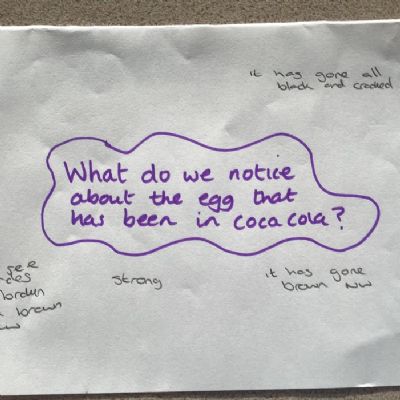 it has gone all
black and cracked
What do we notice
about the egg that
has been in coca cola?
see
strong
it has gone
brown NW
brown